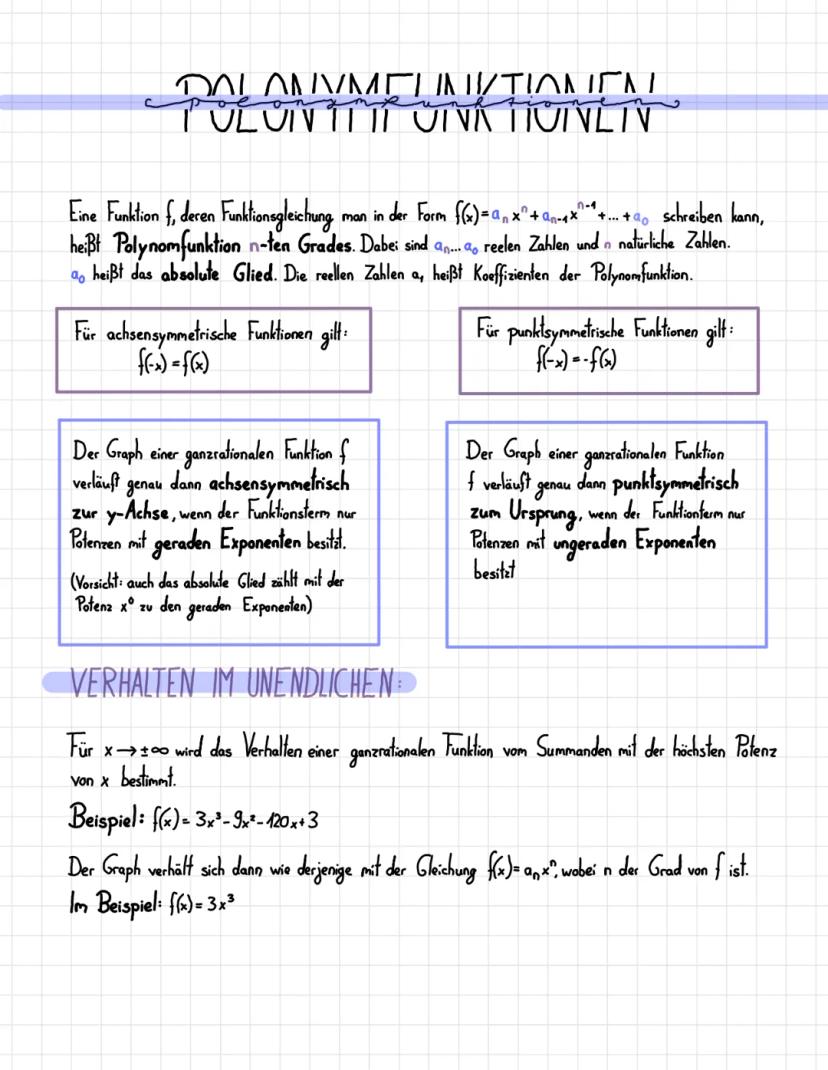 POLONYMFUNKTIONEN
polonymfunktionen
Eine Funktion f, deren Funktionsgleichung man in der Form f(x)=aₙxⁿ+aₙ₋₁xⁿ⁻¹+...+a₀ schreiben kann,
heißt Polynomfunktion n-ten Grades. Dabei sind aₙ...a₀ reelen Zahlen und n natürliche Zahlen.
a₀ heißt das absolute Glied. Die reellen Zahlen a, heißt Koeffizienten der Polynomfunktion.
Für achsensymmetrische Funktionen gilt:
f(-x)=f(x)
Für punktsymmetrische Funktionen gilt:
f(-x)=-f(x)
Der Graph einer ganzrationalen Funktion f
verläuft genau dann achsensymmetrisch
zur y-Achse, wenn der Funktionsterm nur
Potenzen mit geraden Exponenten besitzt.
(Vorsicht: auch das absolute Glied zählt mit der
Potenz x⁰ zu den geraden Exponenten)
Der Graph einer ganzrationalen Funktion
f verläuft genau dann punktsymmetrisch
zum Ursprung, wenn der Funktionterm nur
Potenzen mit ungeraden Exponenten
besitzt
VERHALTEN IM UNENDLICHEN:
Für x→±∞ wird das Verhalten einer ganzrationalen Funktion vom Summanden mit der höchsten Potenz
von x bestimmt.
Beispiel: f(x)=3x³-9x²-120x+3
Der Graph verhält sich dann wie derjenige mit der Gleichung f(x)=aₙxⁿ, wobei n der Grad von f ist.
Im Beispiel: f(x)=3x³